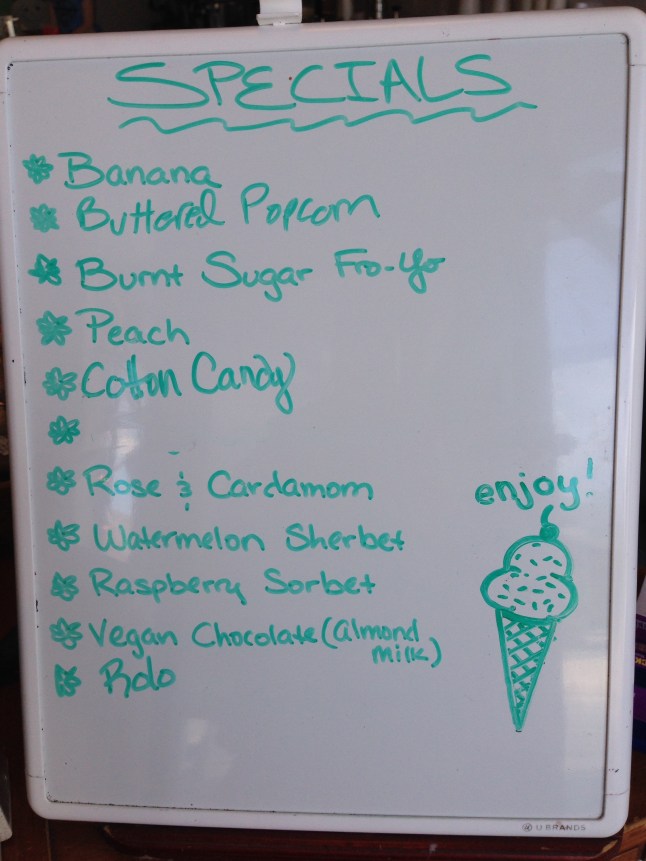 SPECIALS
Banana
Buttered Popcorn
Burnt Sugar Fro-Yo
Peach
Cotton Candy
Rose & Cardamom
Watermelon Sherbet
Raspberry Sorbet
Vegan Chocolate (almond
milk)
Rolo
enjoy!
U BRANDS